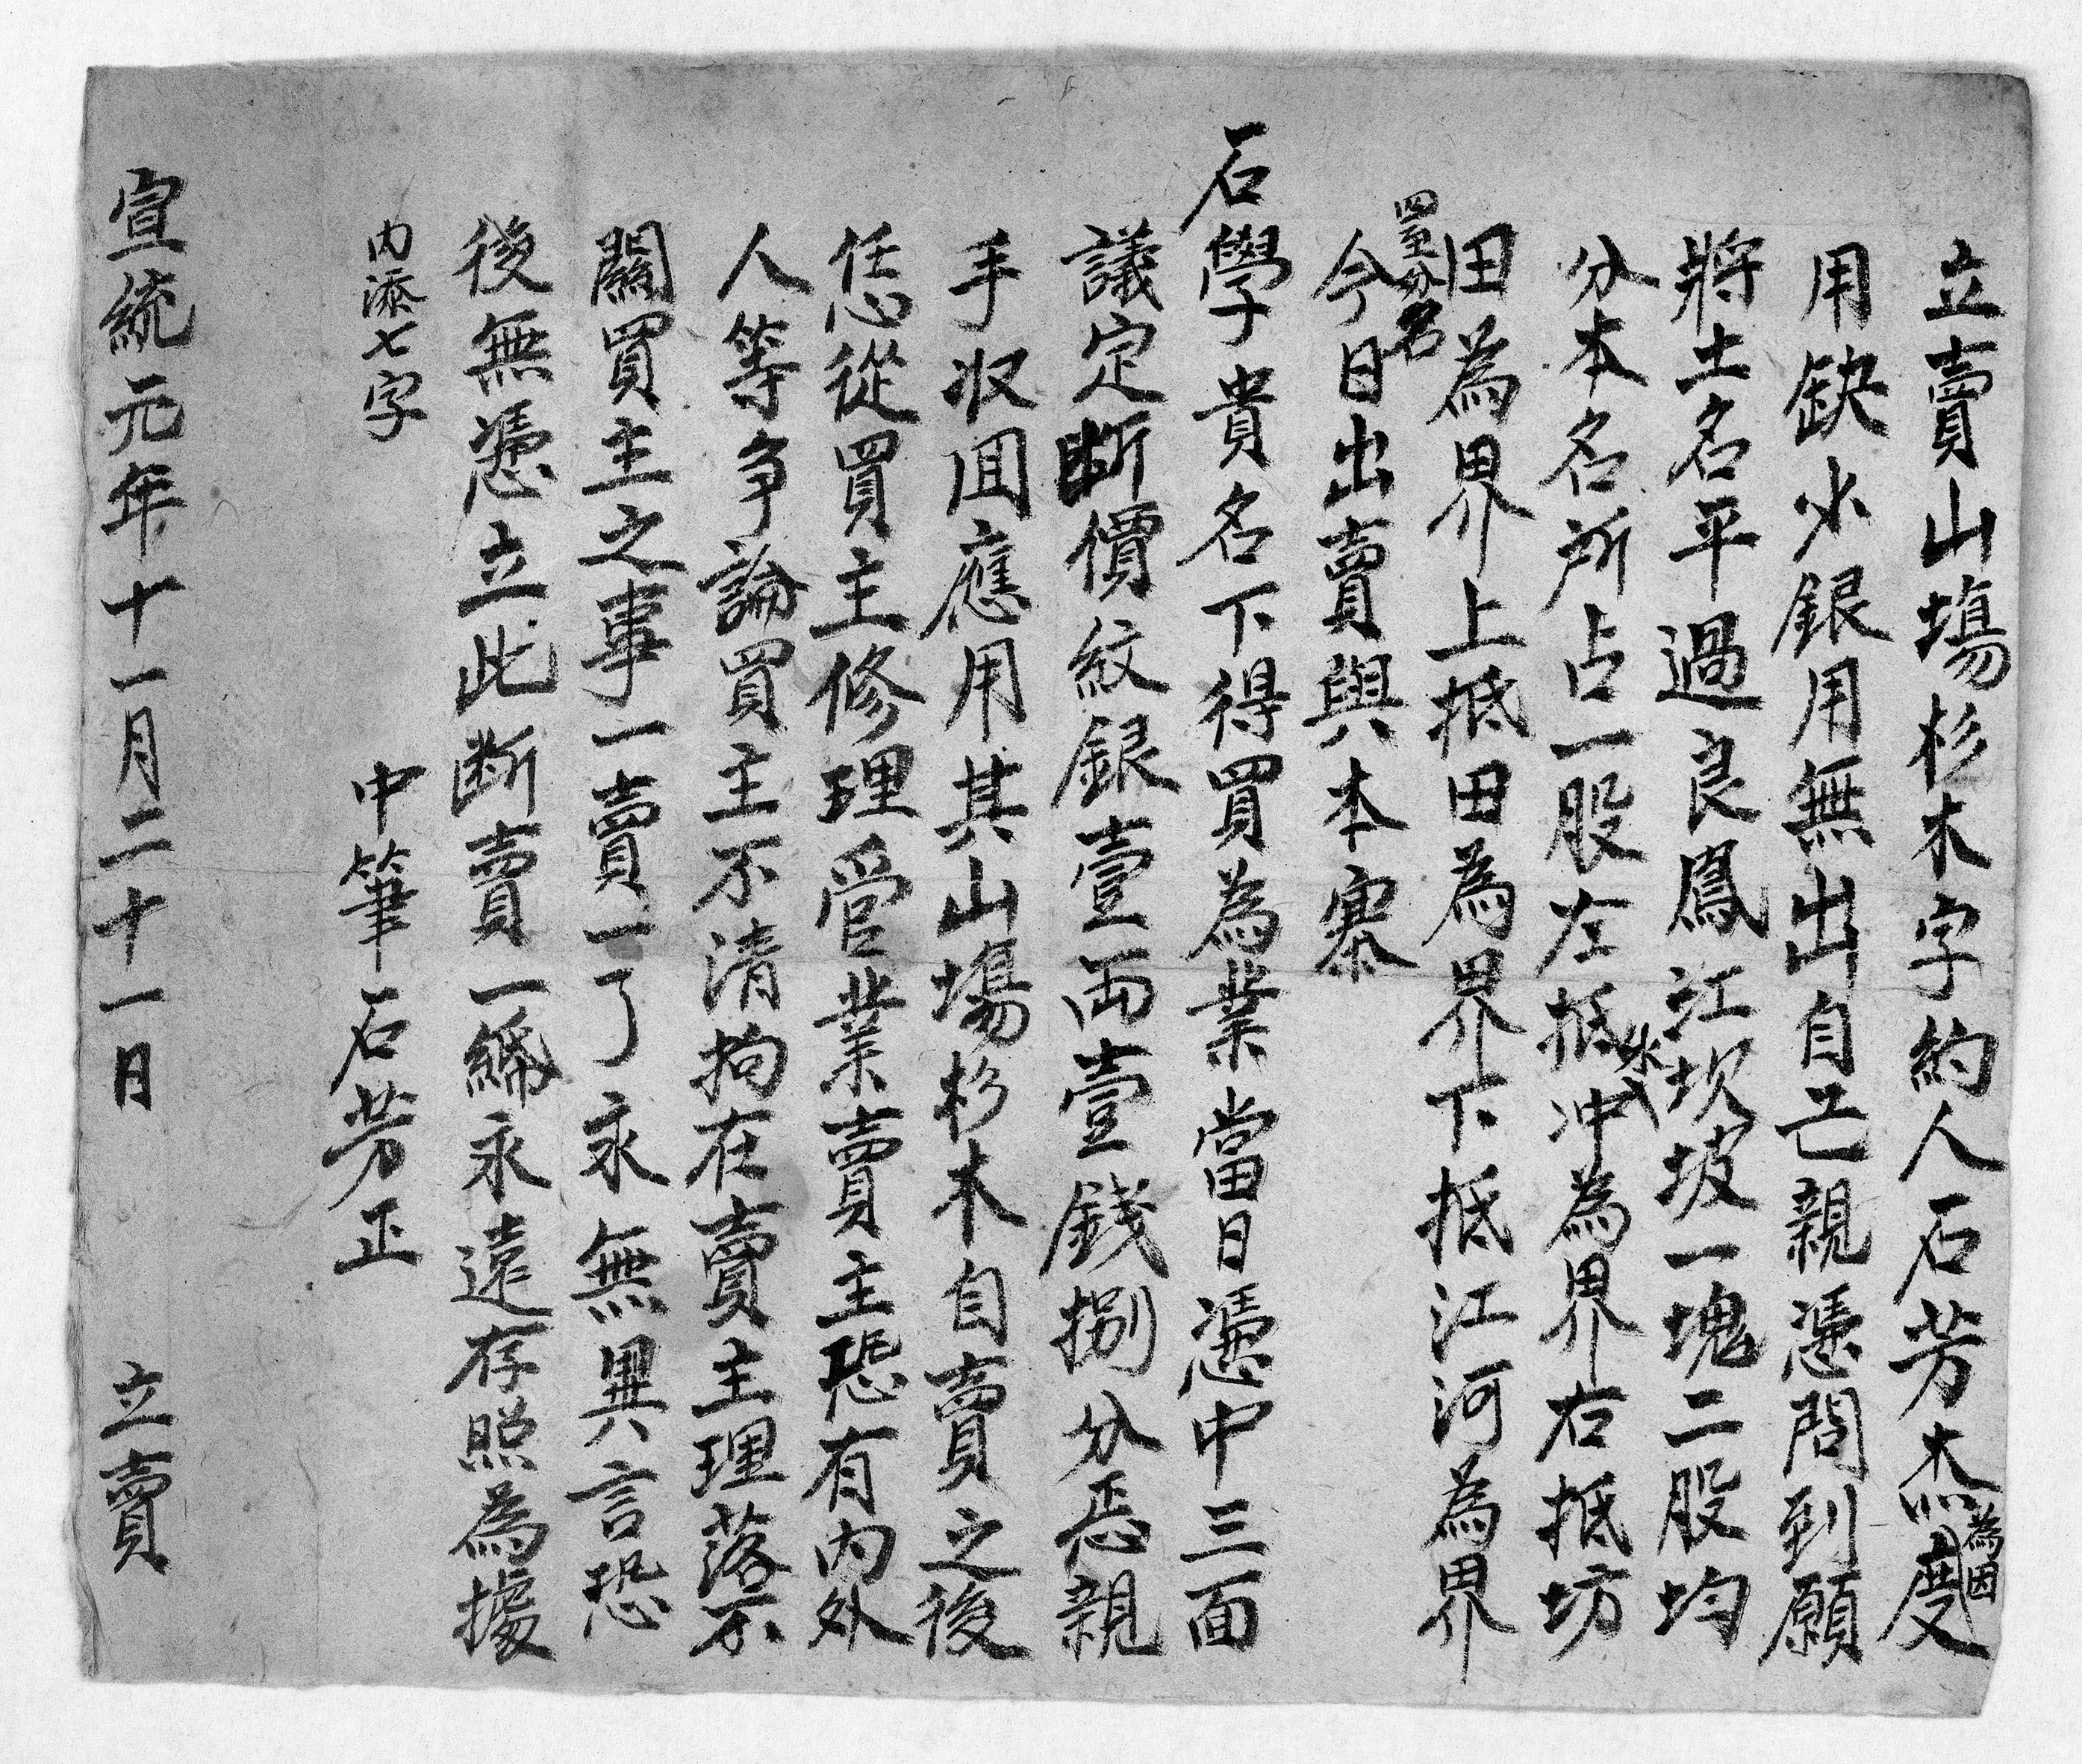 立賣山塲杉木字約人石芳杰為因度
用缺少銀用無出自己親憑問到願
將土名平過良鳳江坎坡一塊二股均
分本名所占一股左抵冲為界右抵坊
田為界上抵田為界下抵江河為界
四至分名
今日出賣與本寨
石學貴名下得買為業當日憑中三面
議定断價紋銀壹両壹錢捌分恁親
手收囬應用其山塲杉木自賣之後
恁從買主修理管業賣主恐有内外
人等争論買主不清拘在賣主理落不
關買主之事一賣一了永無異言恐
後無憑立此断賣一𦂶永遠存照為據
内添七字
中筆石芳正
宣統元年十一月二十一日 立賣